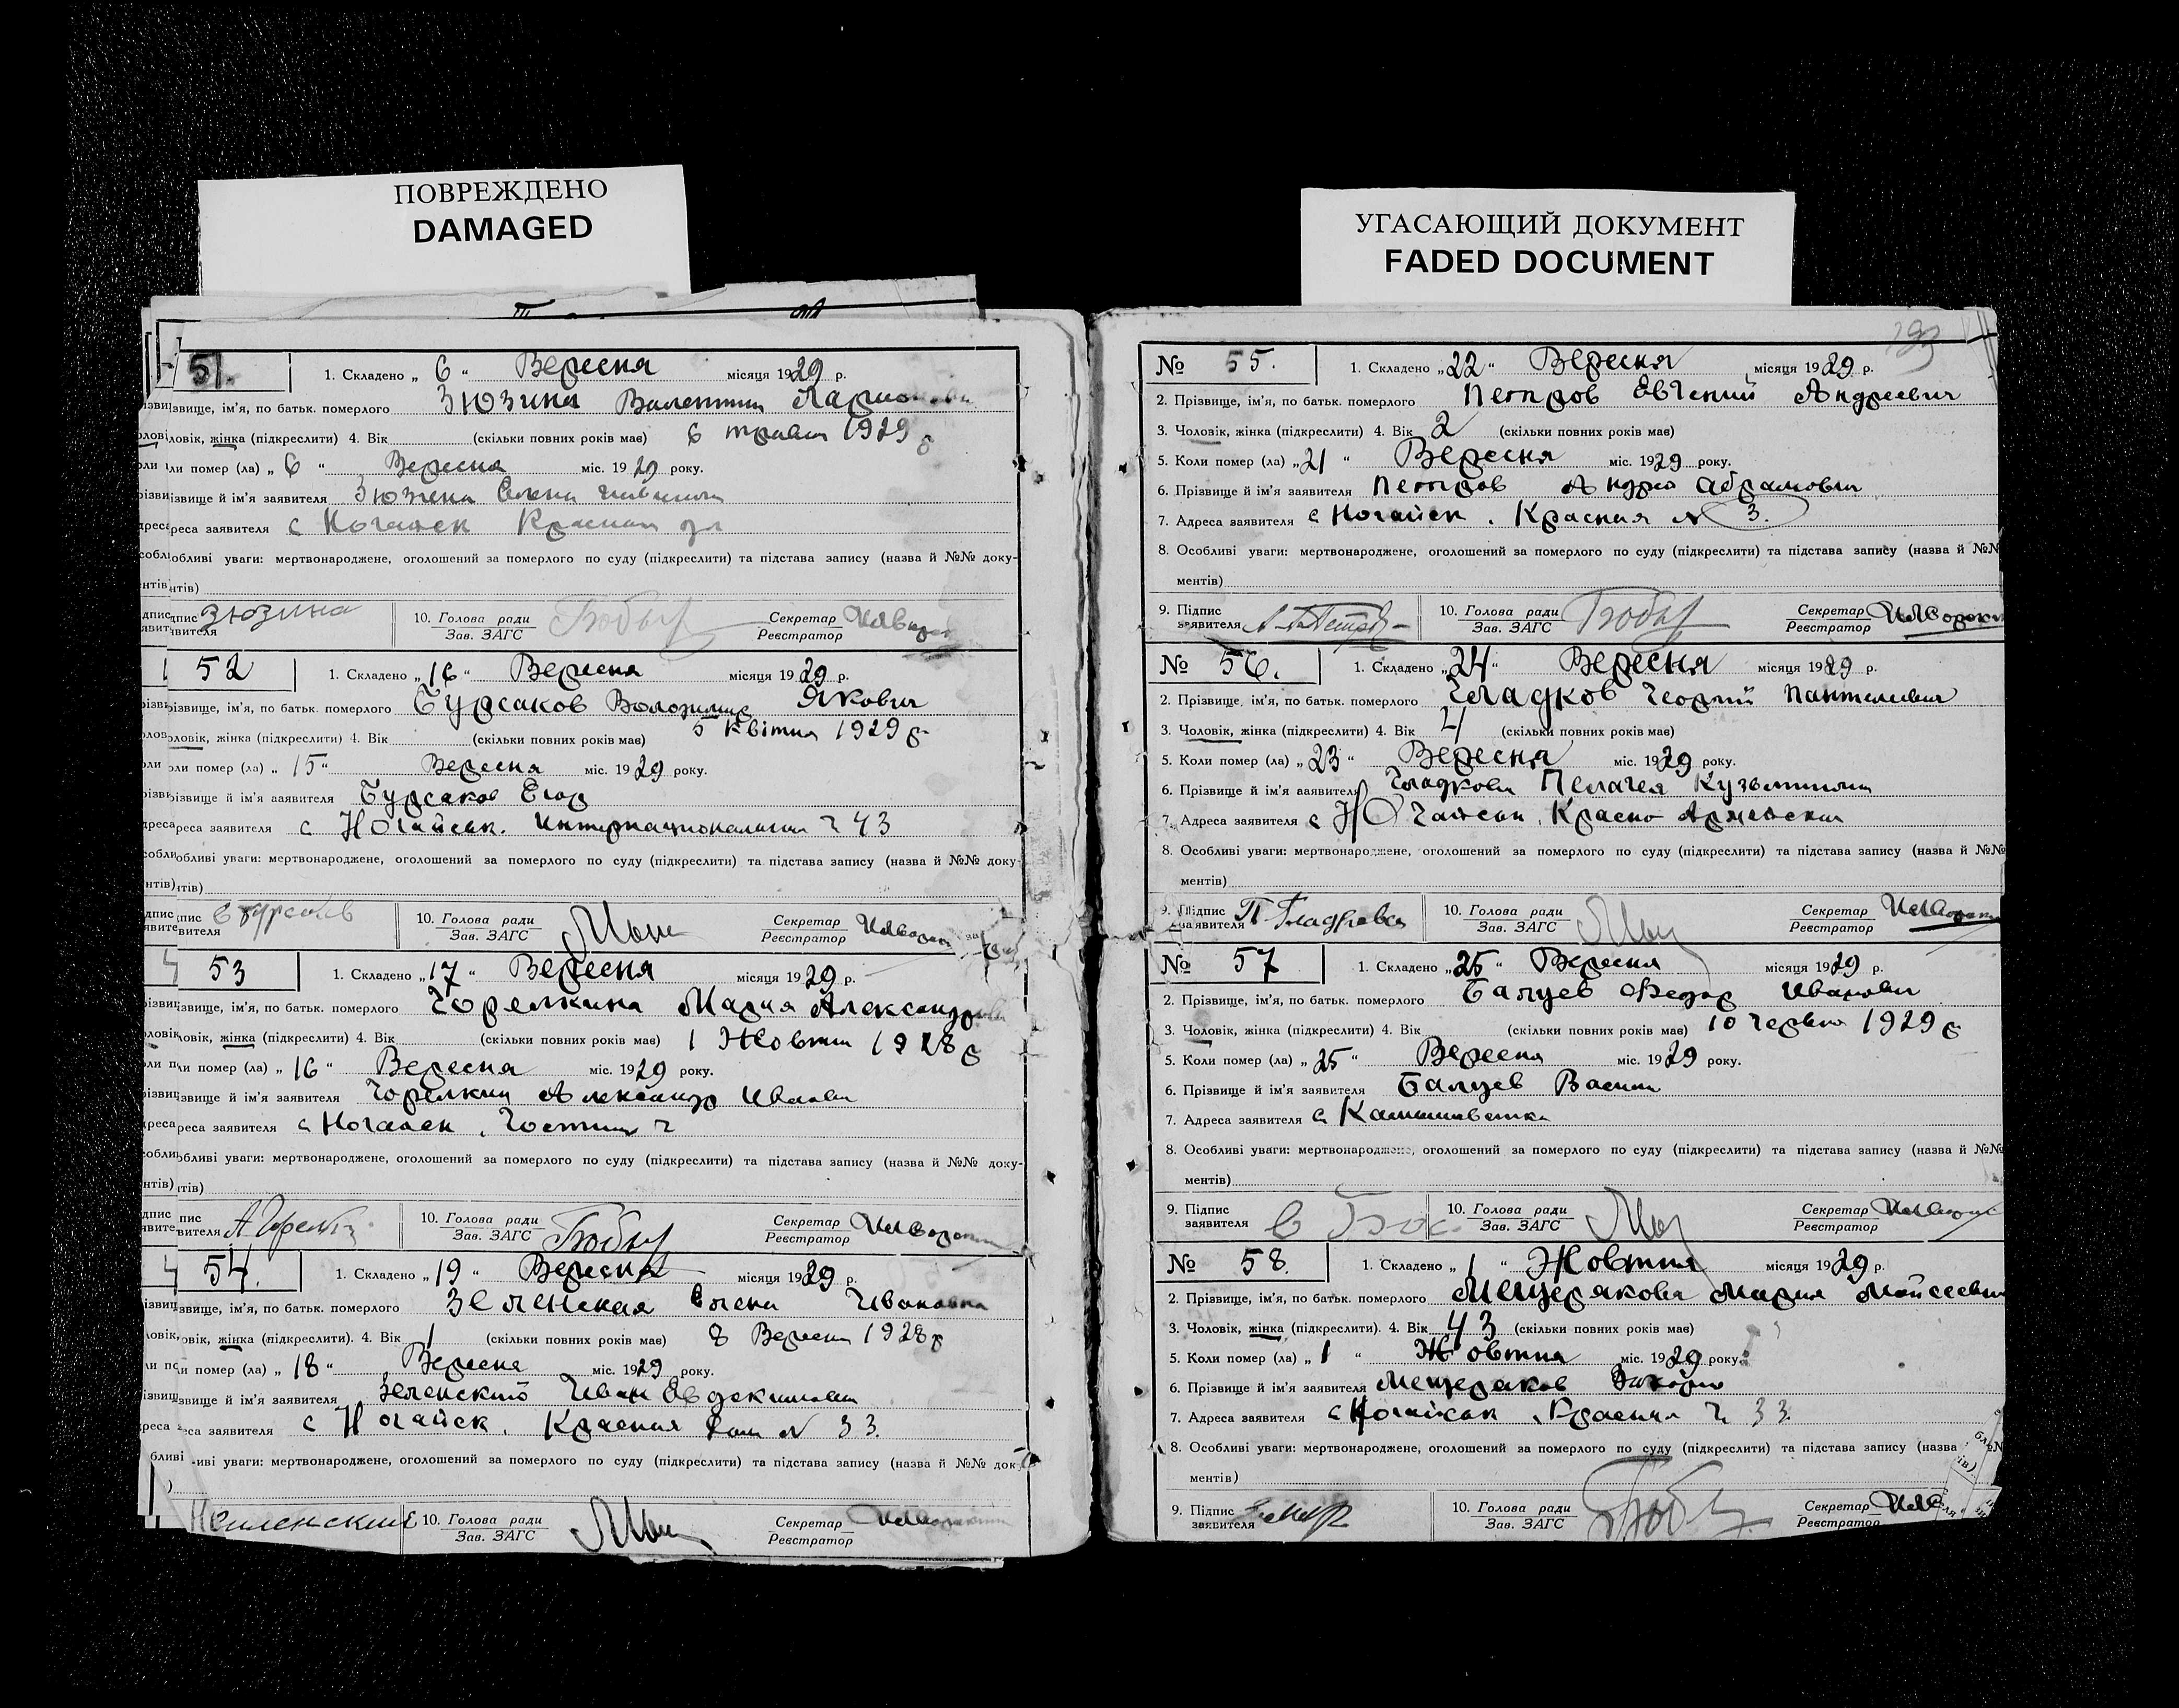 ПОВРЕЖДЕНО
DAMAGED
УГАСАЮЩИЙ ДОКУМЕНТ
FADED DOCUMENT
51.
1. Складено „ 6 “ Вересня місяця 1929 р.
ізвище, ім'я, по батьк. померлого Зюзина Валентин
ловік, жінка (підкреслити) 4. Вік (скільки повних років має) 6 травня 1929 р
ли помер (ла) „ 6 “ Вересня міс. 1929 року.
ізвище й ім'я заявителя Зюзина Елена
реса заявителя с Ногайск Красная ул
обливі уваги: мертвонароджене, оголошений за померлого по суду (підкреслити) та підстава запису (назва й №№ доку-
нтів)
пис
вителя Зюзина 10. Голова ради
Зав. ЗАГС Бобыр Секретар
Реєстратор
52 1. Складено „ 16 “ Вересня місяця 1929 р.
ізвище, ім'я, по батьк. померлого Бурсаков Володимир Якович
ловік, жінка (підкреслити) 4. Вік (скільки повних років має) 5 Квітня 1929 р
ли помер (ла) „ 15 “ Вересня міс. 1929 року.
ізвище й ім'я заявителя Бурсаков Егор
реса заявителя с Ногайськ. Интернациональная 43
обливі уваги: мертвонароджене, оголошений за померлого по суду (підкреслити) та підстава запису (назва й №№ доку-
нтів)
пис
вителя 10. Голова ради
Зав. ЗАГС Секретар
Реєстратор
53 1. Складено „ 17 “ Вересня місяця 1929 р.
звище, ім'я, по батьк. померлого Горелкина Мария Александровна
ловік, жінка (підкреслити) 4. Вік (скільки повних років має) 1 Жовтня 1928 р
ли помер (ла) „ 16 “ Вересня міс. 1929 року.
звище й ім'я заявителя Горелкин Александр Иванович
реса заявителя с Ногайск,
обливі уваги: мертвонароджене, оголошений за померлого по суду (підкреслити) та підстава запису (назва й №№ доку-
нтів)
пис
вителя 10. Голова ради
Зав. ЗАГС Бобыр Секретар
Реєстратор
54. 1. Складено „ 19 “ Вересня місяця 1929 р.
звище, ім'я, по батьк. померлого Зеленская Елена Ивановна
овік, жінка (підкреслити). 4. Вік 1 (скільки повних років має) 8 Вересня 1928 р
и помер (ла) „ 18 “ Вересня міс. 1929 року.
звище й ім'я заявителя Зеленский Иван Евдокимович
еса заявителя с Ногайск, Красная дом № 33.
иві уваги: мертвонароджене, оголошений за померлого по суду (підкреслити) та підстава запису (назва й №№ док
)
10. Голова ради
Зав. ЗАГС Секретар
Реєстратор
№ 55. 1. Складено „ 22 “ Вересня місяця 1929 р.
2. Прізвище, ім'я, по батьк. померлого Петров Евгений Андреевич
3. Чоловік, жінка (підкреслити) 4. Вік 2 (скільки повних років має)
5. Коли помер (ла) „ 21 “ Вересня міс. 1929 року.
6. Прізвище й ім'я заявителя Петров Андрей Абрамович
7. Адреса заявителя с Ногайск, Красная № 3.
8. Особливі уваги: мертвонароджене, оголошений за померлого по суду (підкреслити) та підстава запису (назва й №№
ментів)
9. Підпис
заявителя 10. Голова ради
Зав. ЗАГС Бобыр Секретар
Реєстратор
№ 56. 1. Складено „ 24 “ Вересня місяця 1929 р.
2. Прізвище, ім'я, по батьк. померлого Гладков Георгий Пантелеевич
3. Чоловік, жінка (підкреслити) 4. Вік 4 (скільки повних років має)
5. Коли помер (ла) „ 23 “ Вересня міс. 1929 року.
6. Прізвище й ім'я заявителя Гладкова Пелагея Кузьминична
7. Адреса заявителя с Ногайськ, Красно Армейская
8. Особливі уваги: мертвонароджене, оголошений за померлого по суду (підкреслити) та підстава запису (назва й №№
ментів)
9. Підпис
заявителя П Гладкова 10. Голова ради
Зав. ЗАГС Секретар
Реєстратор
№ 57 1. Складено „ 25 “ Вересня місяця 1929 р.
2. Прізвище, ім'я, по батьк. померлого Балуев Федор Иванович
3. Чоловік, жінка (підкреслити) 4. Вік (скільки повних років має) 10 Червня 1929 р
5. Коли помер (ла) „ 25 “ Вересня міс. 1929 року.
6. Прізвище й ім'я заявителя Балуев
7. Адреса заявителя с
8. Особливі уваги: мертвонароджене, оголошений за померлого по суду (підкреслити) та підстава запису (назва й №№
ментів)
9. Підпис
заявителя 10. Голова ради
Зав. ЗАГС Секретар
Реєстратор
№ 58. 1. Складено „ 1 “ Жовтня місяця 1929 р.
2. Прізвище, ім'я, по батьк. померлого Мещерякова Мария
3. Чоловік, жінка (підкреслити). 4. Вік 43 (скільки повних років має)
5. Коли помер (ла) „ 1 “ Жовтня міс. 1929 року
6. Прізвище й ім'я заявителя Мещеряков
7. Адреса заявителя с Ногайськ, Красная 33.
8. Особливі уваги: мертвонароджене, оголошений за померлого по суду (підкреслити) та підстава запису (назва
ментів)
9. Підпис
заявителя 10. Голова ради
Зав. ЗАГС Секретар
Реєстратор